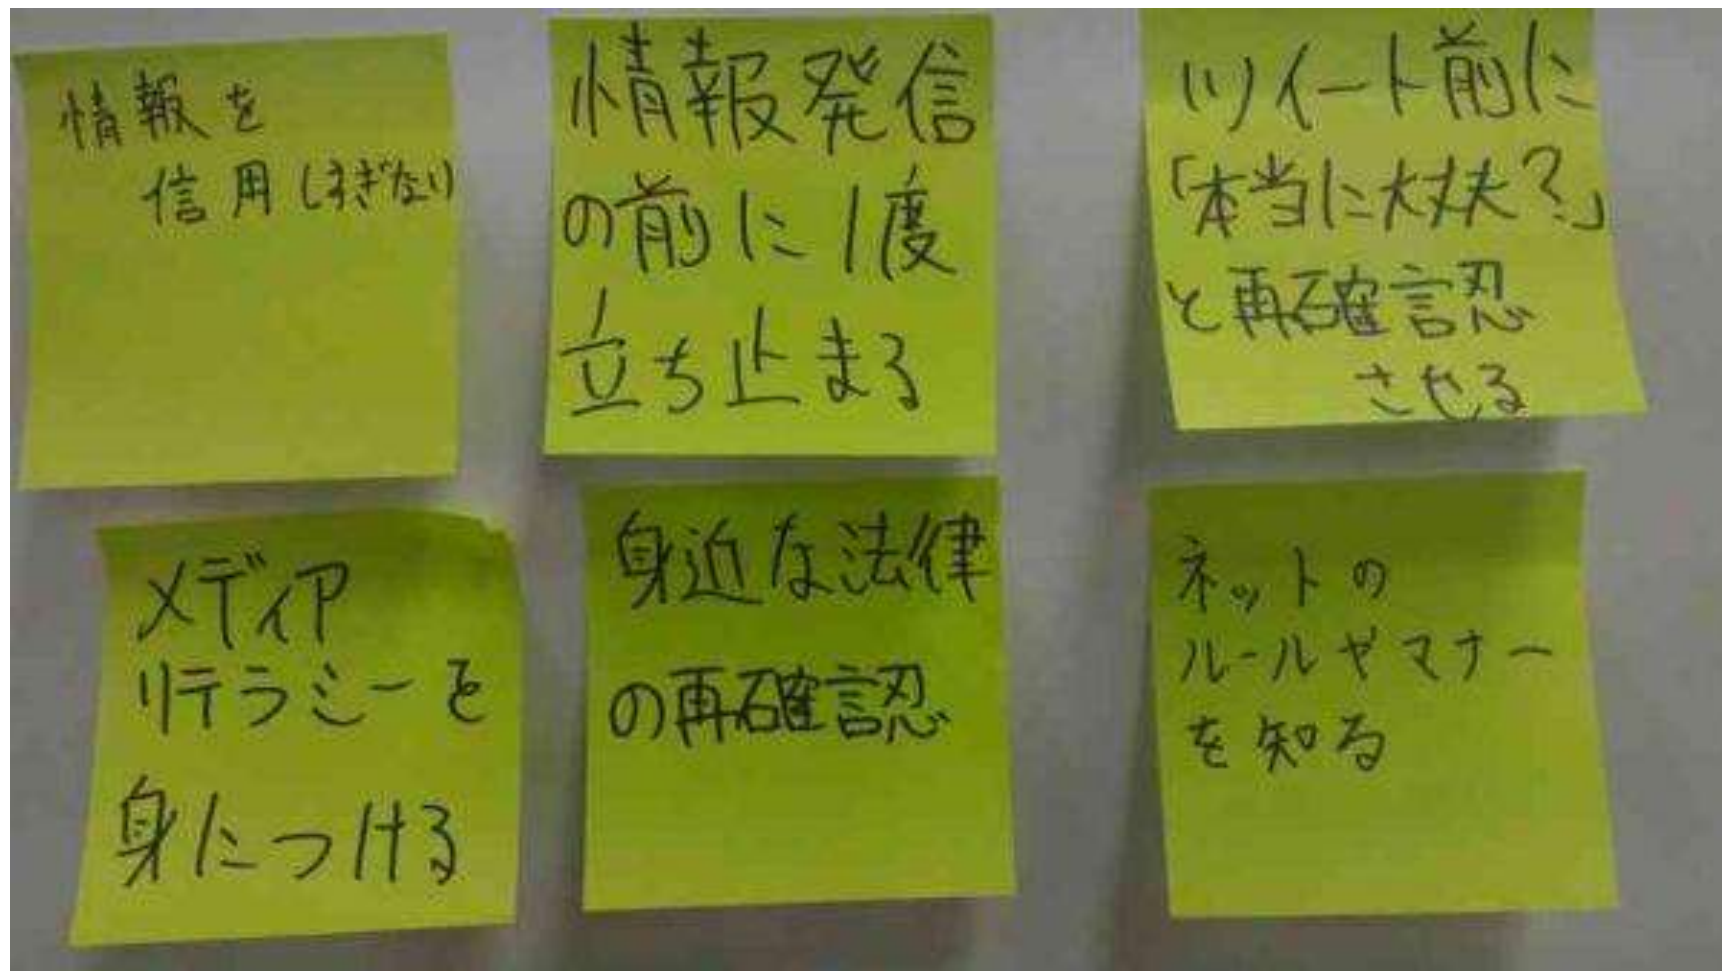 情報を
信用しすぎない
情報発信
の前に1度
立ち止まる
ツイート前に
「本当に大丈夫?」
と再確認
させる
メディア
リテラシーを
身につける
身近な法律
の再確認
ネットの
ルールやマナー
を知る